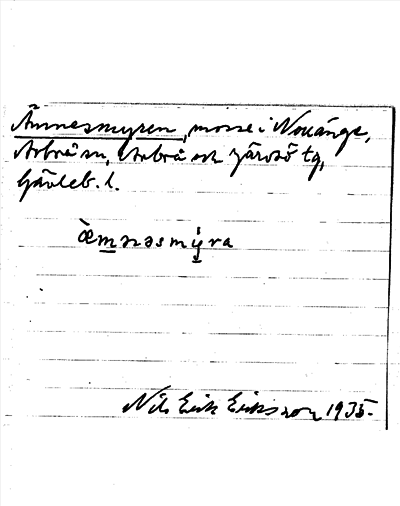 Ämnesmyren, mosse i Nouänge,
Arbrå sn, Arbrå och Järvsö tg,
Gävleb. l.
æ̀mnəsmýra
Nils Erik Eriksson 1935.